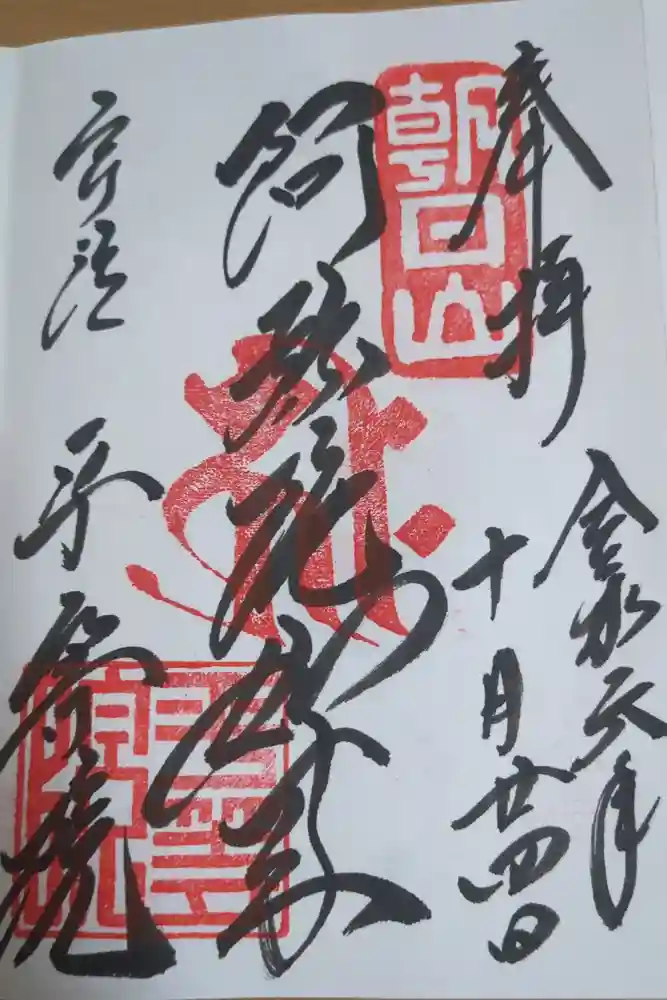 奉拝
令和元年
十月廿四日
朝日山
阿弥陀如来
宇治
平等院